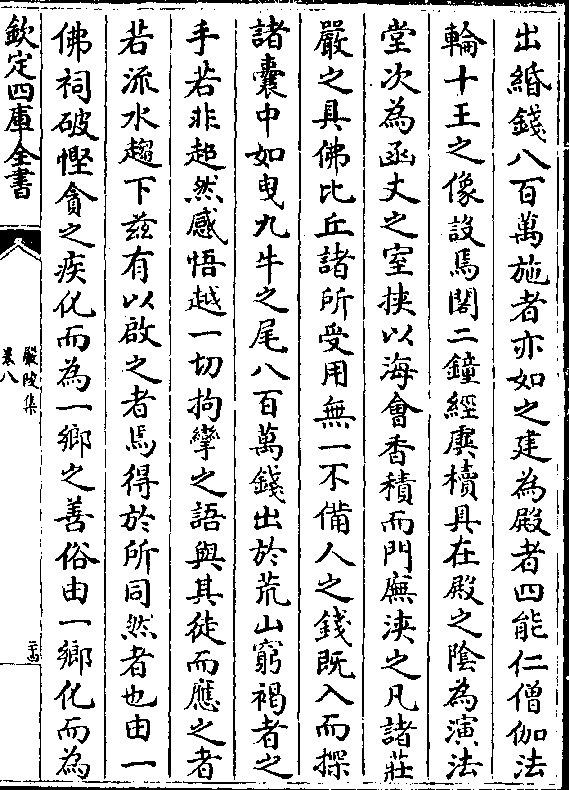 出緡錢八百萬施者亦如之建為殿者四能仁僧伽法
輪十王之像設焉閣二鐘經庋櫝具在殿之陰為演法
堂次為函丈之室挾以海會香積而門廡浹之凡諸莊
嚴之具佛比丘諸所受用無一不備人之錢既入而探
諸囊中如曳九牛之尾八百萬錢出於荒山窮褐者之
手若非超然感悟越一切拘攣之語與其徒而應之者
若流水趨下茲有以啟之者焉得於所同然者也由一
佛祠破慳貪之疾化而為一鄉之善俗由一鄉化而為
欽定四庫全書
嚴陵集
卷八
二十四